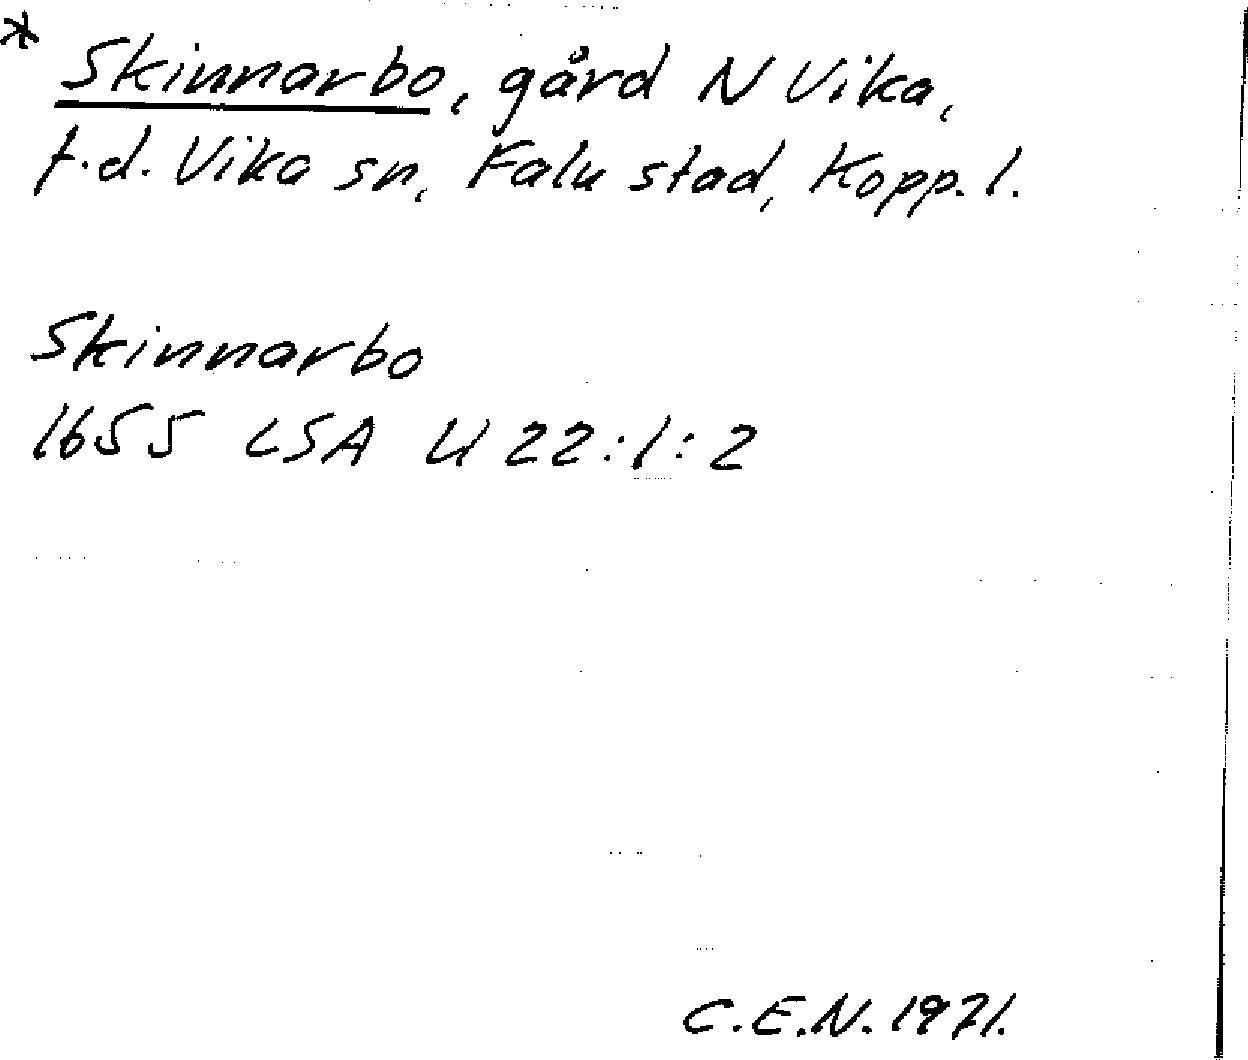 * Skinnarbo, gård N Vika,
f.d. Vika sn, Falu stad, Kopp. l.
Skinnarbo
1655 LSA U 22:1:2
C.E.N. 1971.